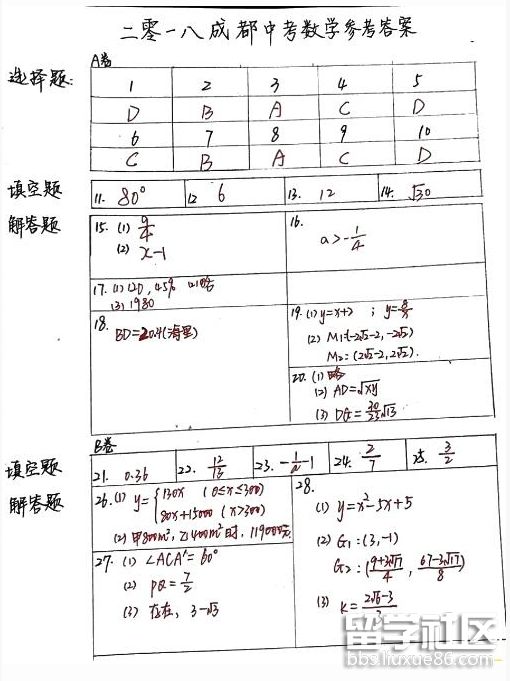 二零一八成都中考数学参考答案
A卷
选择题:
1 2 3 4 5
D B A C D
6 7 8 9 10
C B A C D
填空题
11. 80° 12 6 13. 12 14. √30
解答题
15. (1) 9/4
(2) x-1
16. a>-1/4
17. (1) 120, 45% (2)略
(3) 1980
18. BD=20.4(海里)
19. (1) y=x+2 ; y=
(2) M₁:(-2√2-2, -2√2)
M₂: (2√2-2, 2√2).
20. (1) 略
(2) AD=√xy
(3) DG=30/23√13
B卷
填空题
21. 0.36 22. 12/13 23. -1/a-1 24. 2/7 25. 3/2
解答题
26. (1) y={130x (0≤x≤300)
80x+15000 (x>300)
(2) 甲800m², 乙400m²时, 119000元.
27. (1) ∠ACA'=60°
(2) PQ=7/2
(3) 存在, 3-√3
28.
(1) y=x²-5x+5
(2) G₁:(3,-1)
G₂:(9+3√17/4, 67-3√17/8)
(3) K=2√6-3/3
留学社区
bbs.liuxue86.com